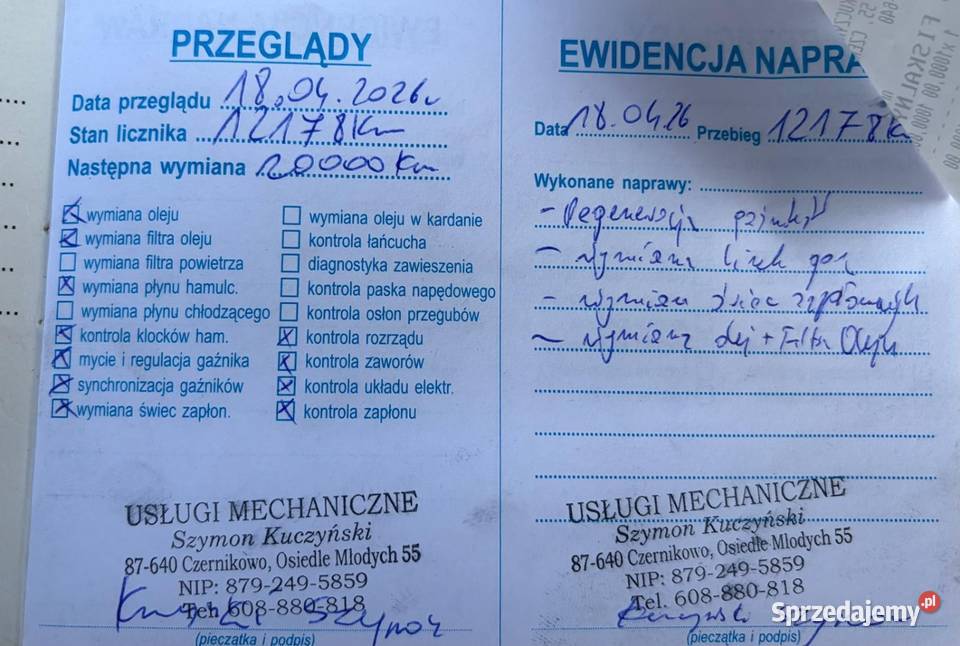 PRZEGLĄDY
Data przeglądu 18.04.2026r
Stan licznika 12178Km
Następna wymiana 20000Km
wymiana oleju
wymiana filtra oleju
wymiana filtra powietrza
wymiana płynu hamulc.
wymiana płynu chłodzącego
kontrola klocków ham.
mycie i regulacja gaźnika
synchronizacja gaźników
wymiana świec zapłon.
wymiana oleju w kardanie
kontrola łańcucha
diagnostyka zawieszenia
kontrola paska napędowego
kontrola osłon przegubów
kontrola rozrządu
kontrola zaworów
kontrola układu elektr.
kontrola zapłonu
USŁUGI MECHANICZNE
Szymon Kuczyński
87-640 Czernikowo, Osiedle Młodych 55
NIP: 879-249-5859
Tel. 608-880-818
(pieczątka i podpis)
EWIDENCJA NAPRA
Data 18.04.26 Przebieg 12178Km
Wykonane naprawy:
- Regeneracja
- wymiana linek gaz
- wymiana świec zapłonowych
- wymiana olej + Filtr Oleju
USŁUGI MECHANICZNE
Szymon Kuczyński
87-640 Czernikowo, Osiedle Młodych 55
NIP: 879-249-5859
Tel. 608-880-818
(pieczątka i podpis)
FISKALN
Sprzedajemy.pl